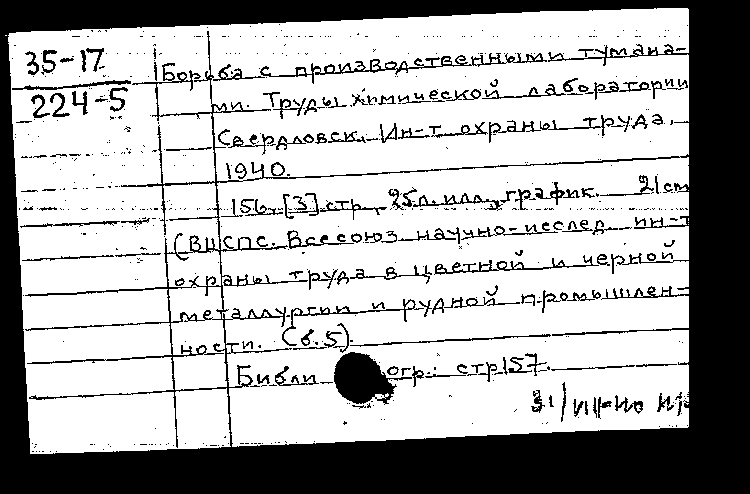 35-17
224-5
Борьба с производственными тумана-
ми. Труды химической лаборатории
Свердловск, Ин-т охраны труда,
1940.
156, [3] стр., 25 л. илл., график. 21 cm
(ВЦСПС. Всесоюз. научно-исслед. ин-т
охраны труда в цветной и черной
металлургии и рудной промышлен-
ности. (в.5).
Библи огр.: стр 157.